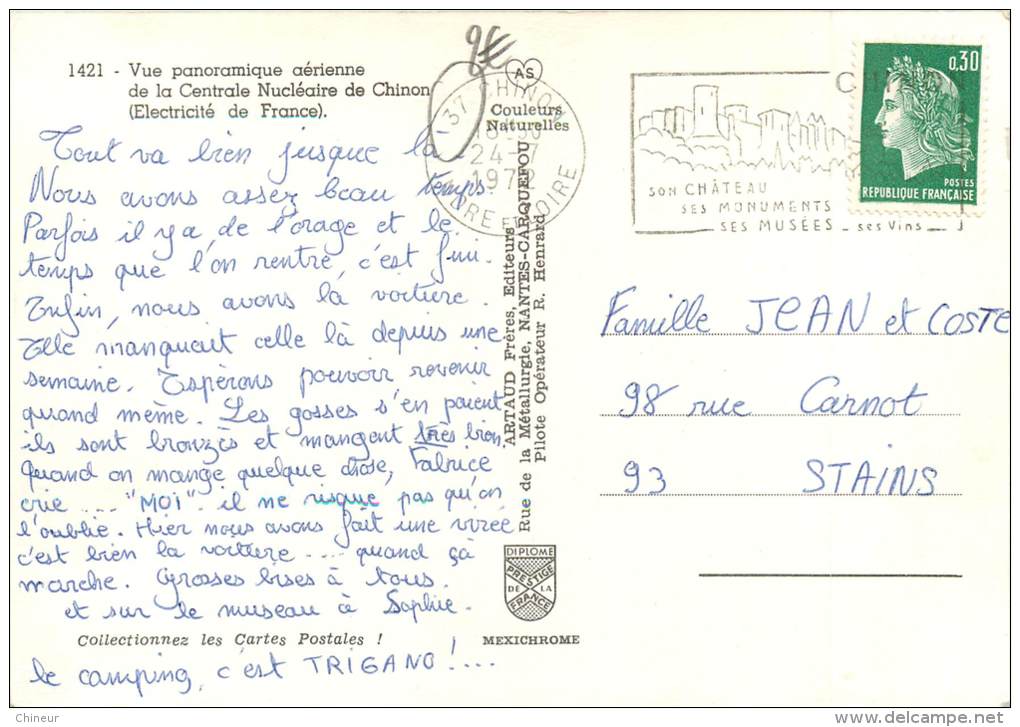 1421 - Vue panoramique aérienne
de la Centrale Nucléaire de Chinon
(Electricité de France).
Tout va bien jusque là
Nous avons assez beau temps.
Parfois il y a de l'orage et le
temps que l'on rentre, c'est fini.
Enfin, nous avons la voiture.
Elle manquait celle là depuis une
semaine. Espérons pouvoir revenir
quand même. Les gosses s'en paient
ils sont bronzés et mangent très bien,
Quand on mange quelque chose, Fabrice
crie .... "MOI". il ne risque pas qu'on
l'oublie. Hier nous avons fait une virée
c'est bien la voiture .... quand ça
marche. Grosses bises à tous.
et sur le museau à Sophie.
Collectionnez les Cartes Postales !
le camping, c'est TRIGANO !....
2€
AS
Couleurs
Naturelles
ARTAUD Frères, Editeurs
Rue de la Métallurgie, NANTES-CARQUEFOU
Pilote Opérateur R. Henrard
DIPLOME
PRESTIGE
DE LA
FRANCE
MEXICHROME
37 CHINON
24-7
1972
INDRE ET LOIRE
CHINON
SON CHÂTEAU
SES MONUMENTS
SES MUSÉES - ses Vins
0,30
POSTES
REPUBLIQUE FRANÇAISE
Famille JEAN et COSTE
98 rue Carnot
93 STAINS
Chineur
delcampe.net